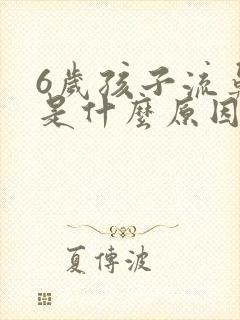 6歲孩子流
是什麼原因
夏傳波